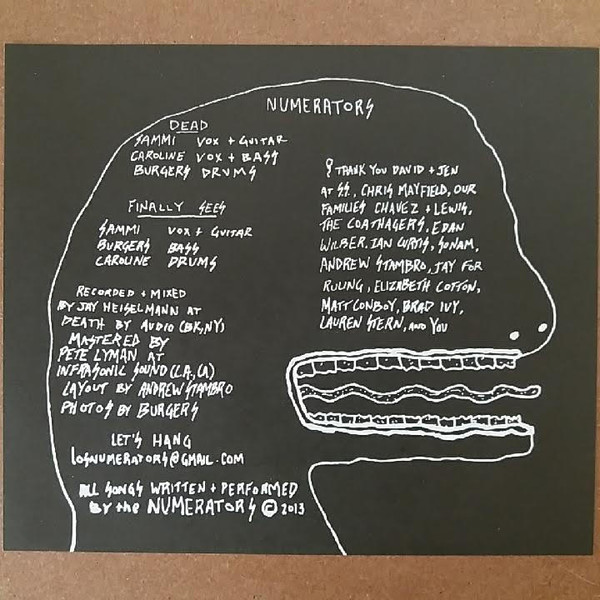 NUMERATORS
DEAD
SAMMI VOX + GUITAR
CAROLINE VOX + BASS
BURGERS DRUMS
FINALLY SEES
SAMMI VOX + GUITAR
BURGERS BASS
CAROLINE DRUMS
RECORDED + MIXED
BY JAY HEISELMANN AT
DEATH BY AUDIO (BK, NY)
MASTERED BY
PETE LYMAN AT
INFRASONIC SOUND (LA, CA)
LAYOUT BY ANDREW STAMBRO
PHOTOS BY BURGERS
LET'S HANG
LOSNUMERATORS@GMAIL.COM
ALL SONGS WRITTEN + PERFORMED
BY the NUMERATORS © 2013
THANK YOU DAVID + JEN
AT SS., CHRIS MAYFIELD, OUR
FAMILIES CHAVEZ + LEWIS,
THE COATHAGERS, EDAN
WILBER, IAN CURTIS, SONAM,
ANDREW STAMBRO, JAY FOR
RULING, ELIZABETH COTTON,
MATT CONBOY, BRAD IVY,
LAUREN STERN, AND YOU